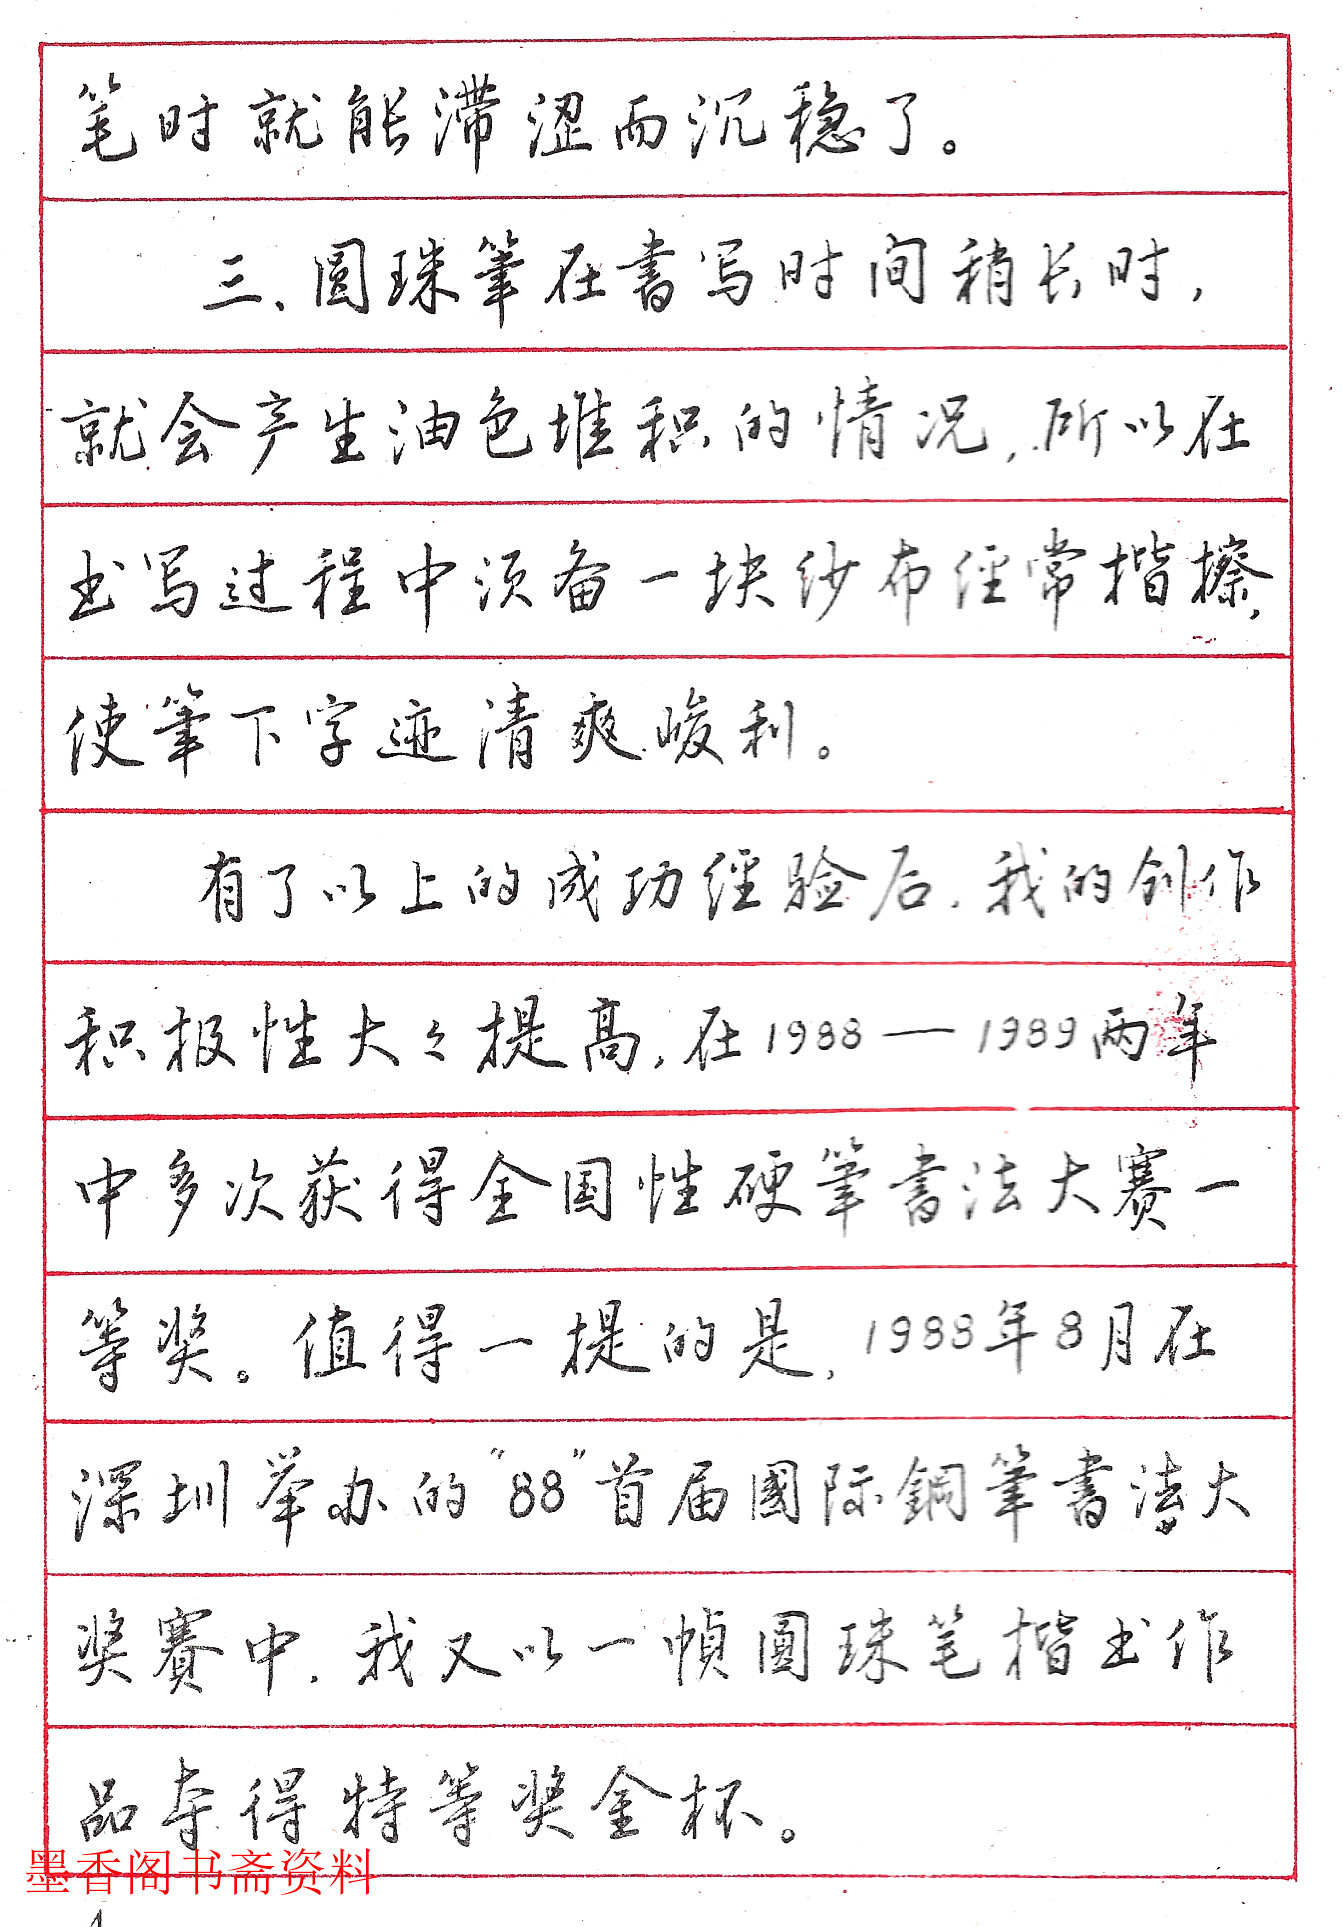 笔时就能滞涩而沉稳了。
三、圆珠筆在書写时间稍长时，
就会产生油色堆积的情况，所以在
书写过程中须备一块纱布经常揩擦，
使筆下字迹清爽峻利。
有了以上的成功经验后，我的创作
积极性大々提高，在1988—1989两年
中多次获得全国性硬筆書法大赛一
等奖。值得一提的是，1988年8月在
深圳举办的"88"首届國际鋼筆書法大
奖賽中，我又以一幀圓珠笔楷书作
品夺得特等奖金杯。
墨香阁书斋资料